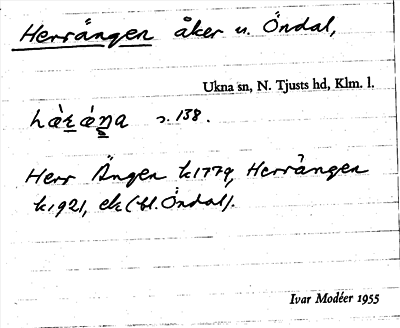 Herrängen åker u. Öndal,
Ukna sn, N. Tjusts hd, Klm. l.
s. 138.
Herr Ängen k1779, Herrängen
k1921, ek (bl. Öndal).
Ivar Modéer 1955